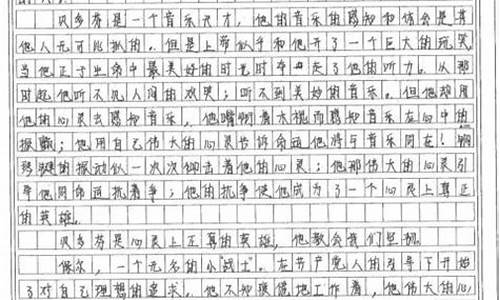 贝多芬是一个音乐天才，他的音乐的感知和体会是其
他人无可比拟的。但是上帝似乎和他开了一个巨大的玩笑，
当他正于生命中最美好的时光时夺走了他的听力。从那
时起他听不见人间的欢笑；听不到美妙的音乐。但他却用
他的心灵去感知音乐，他嘴咬着木棍而感知音乐在心中的
振颤；他用自己伟大的心灵告诉命运他将与音乐同在！钢
琴键的振动似一次次叩击着他的心灵；他那伟大的心灵引
导他同命运抗着争；他的抗争使他成为了一个心灵上真正
的英雄。
贝多芬是心灵上正真的英雄，他教会我们坚强。
保尔，一个无名的小"战士"。在共产党人的引导下开始
了对自己理想的追求。他不知疲倦地工作着，他伟大的心